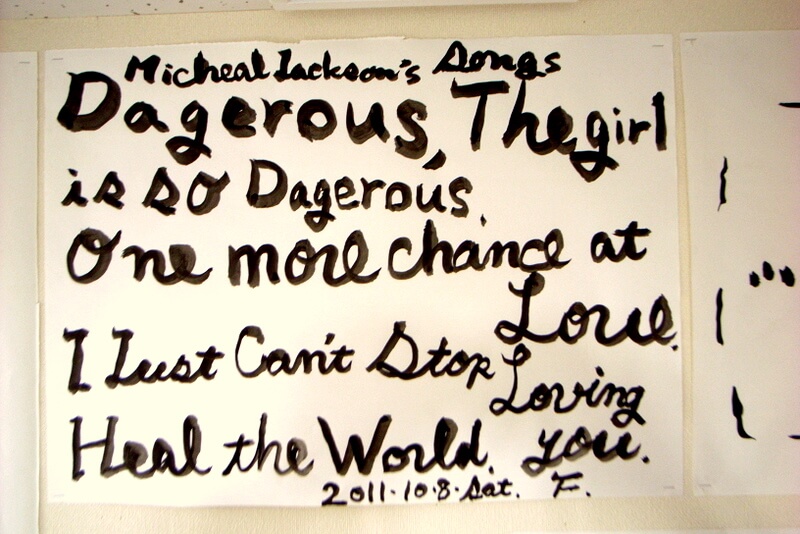 Micheal Jackson's Songs
Dagerous, The girl
is so Dagerous.
One more chance at
Love.
I Just Can't Stop Loving
you.
Heal the World.
2011.10.8.Sat. F.